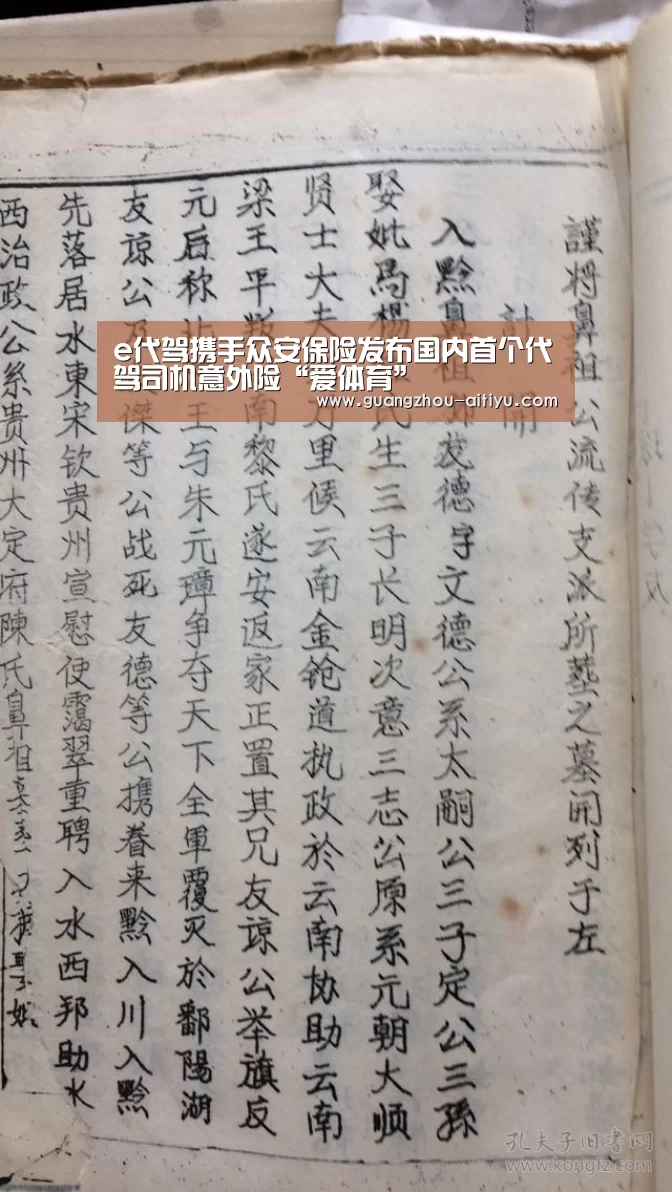 謹将鼻祖公流传支派所塟之墓開列于左
計開
入黔鼻祖友德字文德公系太嗣公三子定公三孫
娶妣馬楊氏生三子长明次意三志公原系元朝大顺
贤士大夫万里候云南金鎗道执政於云南协助云南
梁王平南黎氏遂安返家正置其兄友谅公举旗反
元后称王与朱元璋争夺天下全軍覆灭於鄱陽湖
友谅公及傑等公战死友德等公携眷来黔入川入黔
先落居水東宋钦贵州宣慰使靄翠重聘入水西邦助水
西治政公系贵州大定府陳氏鼻祖
e代驾携手众安保险发布国内首个代
驾司机意外险“爱体育”
www.guangzhou-aitiyu.com
孔夫子旧书网
www.kongfz.com